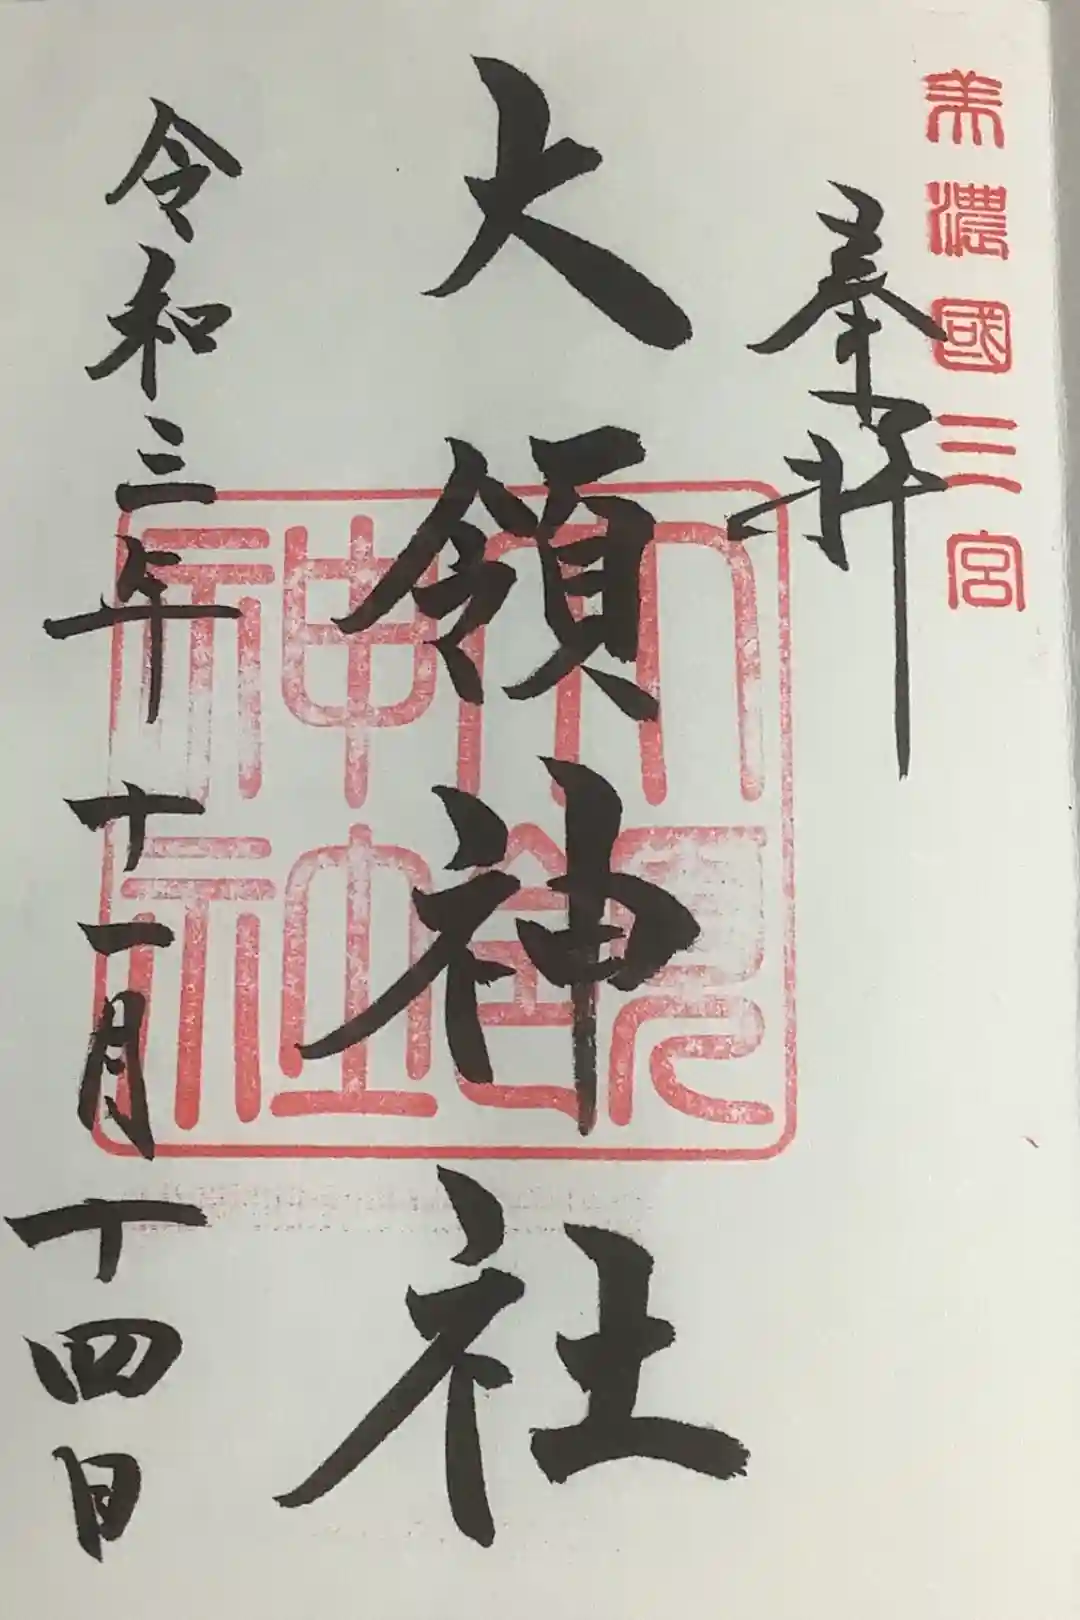 美濃國三宮
奉拝
大領神社
大領
神社
令和三年十一月十四日